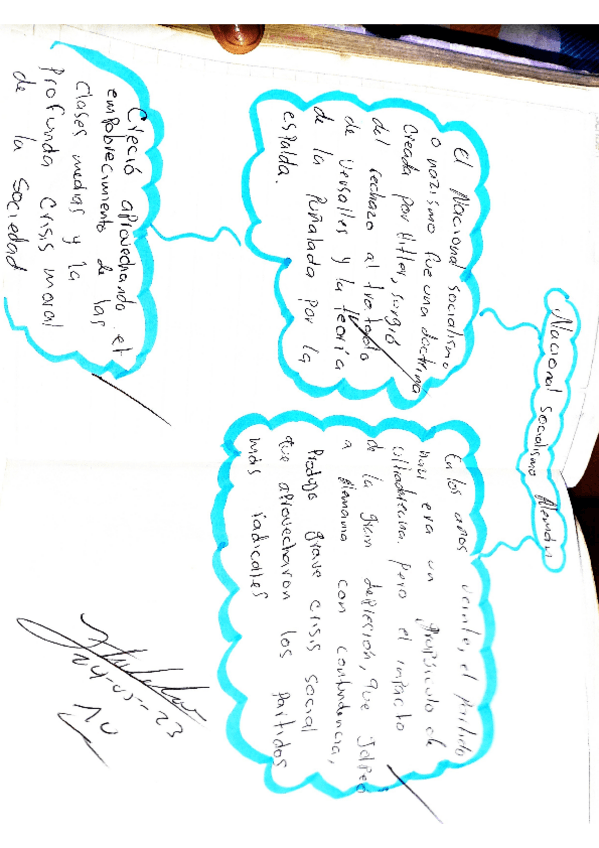 Nacional socialismo Alemán
El Nacional socialismo
o nazismo fue una doctrina
Creada por Hitler, surgió
del rechazo al tratado
de Versalles y la teoría
de la Puñalada por la
espalda.
Creció aprovechando el
empobrecimiento de las
Clases medias y la
Profunda Crisis moral
de la Sociedad
En los años veinte, el partido
nazi era un grupúsculo de
ultraderecha. pero el impacto
de la gran depresión, que golpeó
a Alemania con contundencia,
Produjo grave crisis social
que aprovecharon los Partidos
más radicales
04-05-23
10